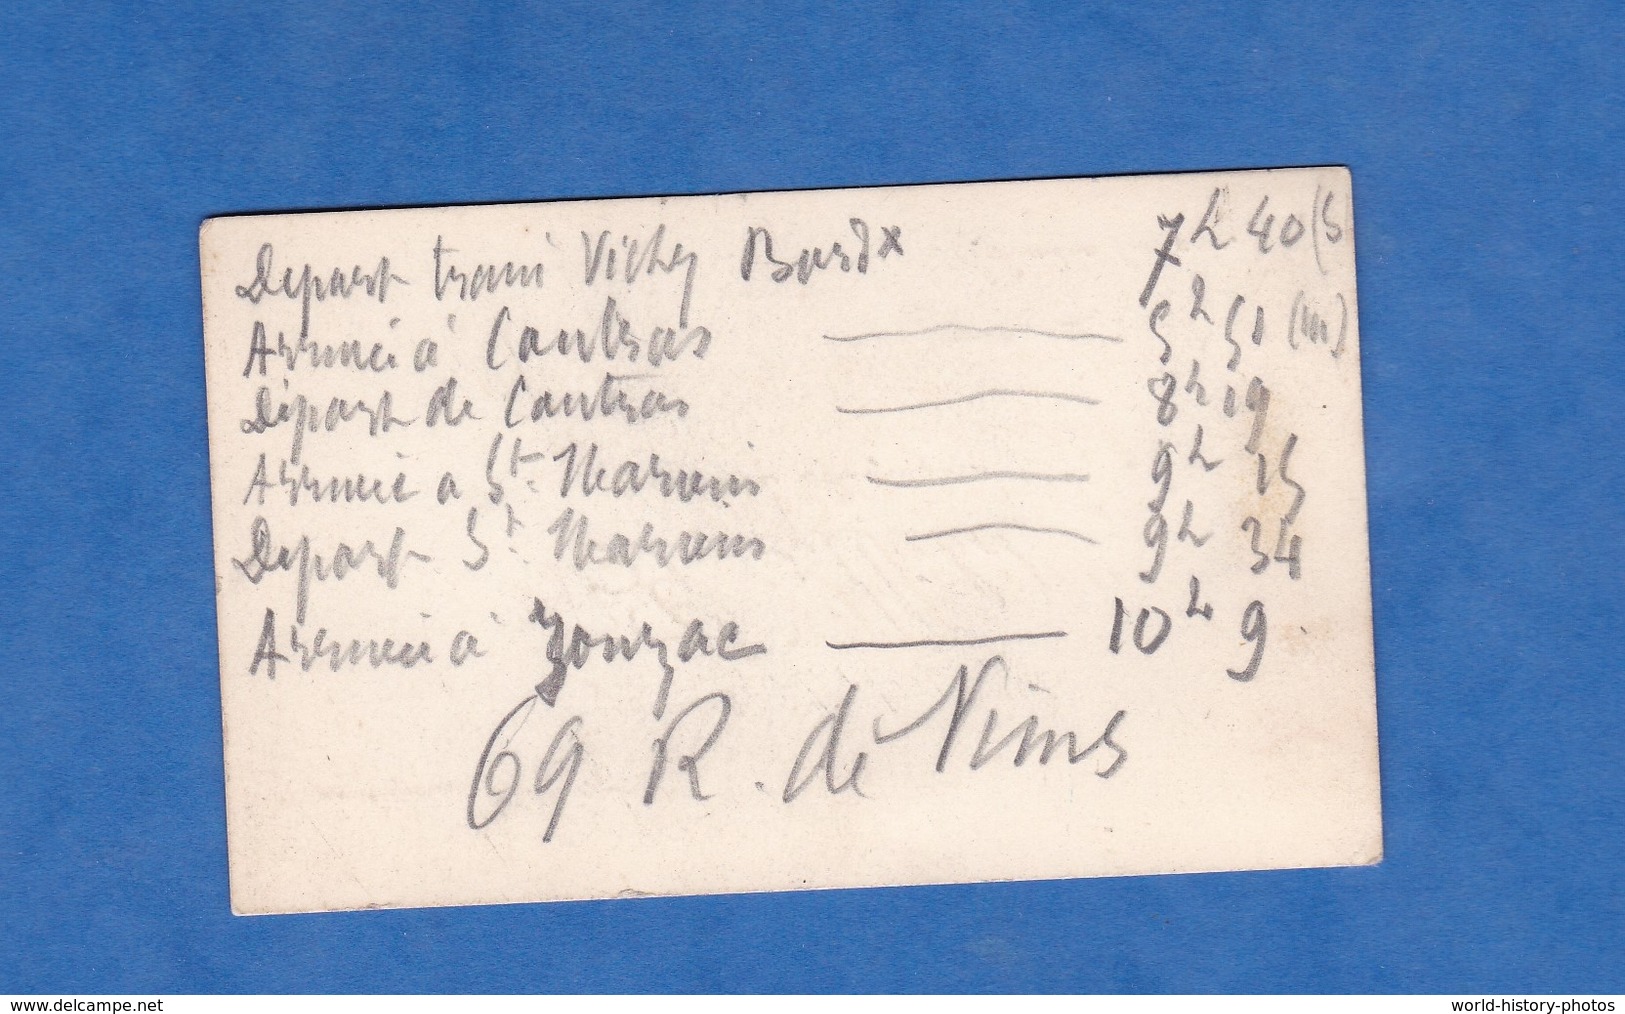 Depart train Vichy Bordx 7h 40 (S
Arrivée à Coutras 5h 51 (m)
Départ de Coutras 8h 19
Arrivée a St. Mariens 9h 15
Depart St Mariens 9h 34
Arrivée à Jonzac 10h 9
69 R. de Nimes
www.delcampe.net
world-history-photos